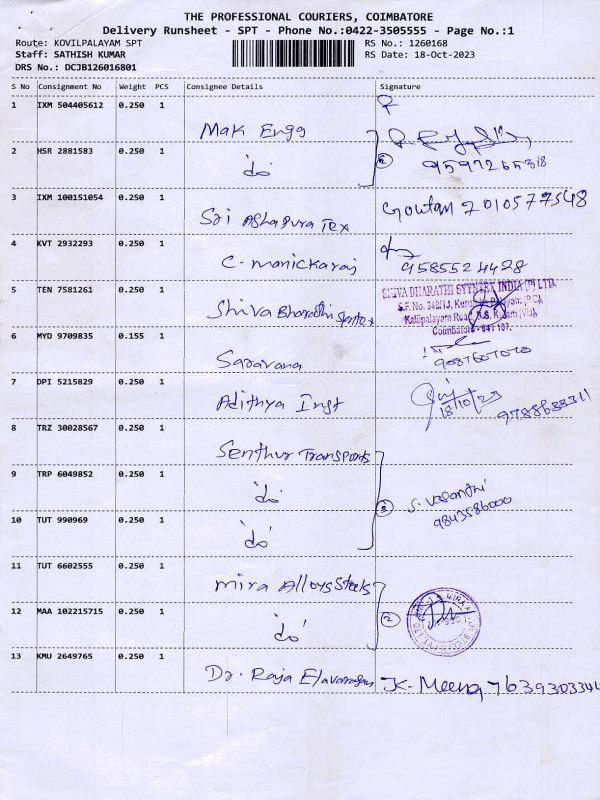 THE PROFESSIONAL COURIERS, COIMBATORE
Delivery Runsheet - SPT - Phone No.:0422-3505555 - Page No.:1
Route: KOVILPALAYAM SPT RS No.: 1260168
Staff: SATHISH KUMAR RS Date: 18-Oct-2023
DRS No.: DCJB126016801
S No Consignment No Weight PCS Consignee Details Signature
1 IXM 504405612 0.250 1 Mak Engg
2 HSR 2881583 0.250 1 'do'
3 IXM 100151054 0.250 1 Sri Ashapura Tex Goutam 7010577548
4 KVT 2932293 0.250 1 C. Manickaraj 9585524428
5 TEN 7581261 0.250 1 Shiva Bharathi Syntex SHIVA BHARATHI SYNTEX INDIA (P) LTD
S.F. No. 348/1J,
Kallipalayam Road,
Coimbatore - 641 107.
6 MYD 9709835 0.155 1 Saravana
7 DPI 5215829 0.250 1 Adithya Inst 18/10/23
8 TRZ 30028567 0.250 1 Senthur Transports
9 TRP 6049852 0.250 1 'do' 3 S. Vasanthi
9843586000
10 TUT 990969 0.250 1 'do'
11 TUT 6602555 0.250 1 Mira Alloys Steels
12 MAA 102215715 0.250 1 'do' 2
13 KMU 2649765 0.250 1 Dr. Raja Elavarasan K. Meena 7639303344